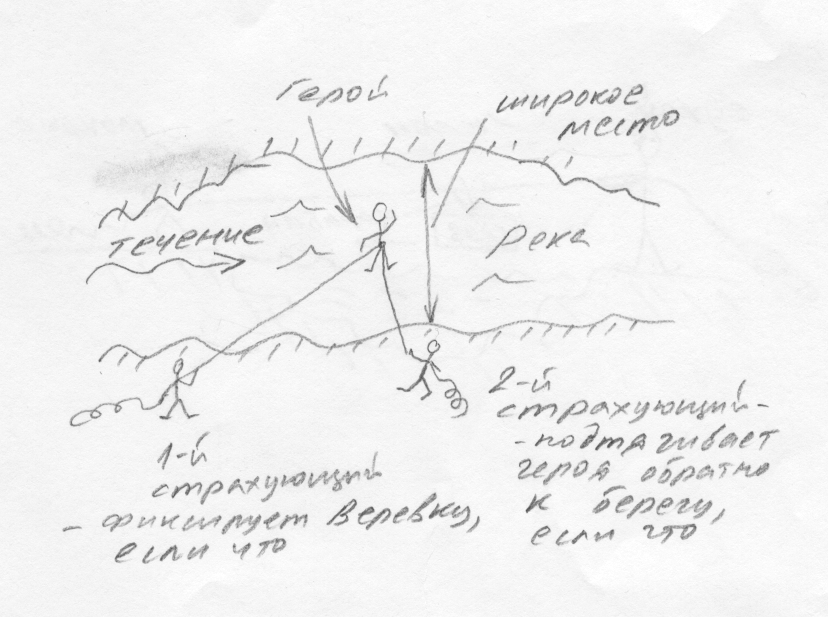 Герой
широкое
место
течение
Река
1-й
страхующий
- фиксирует веревку,
если что
2-й
страхующий-
-подтягивает
героя обратно
к берегу,
если что